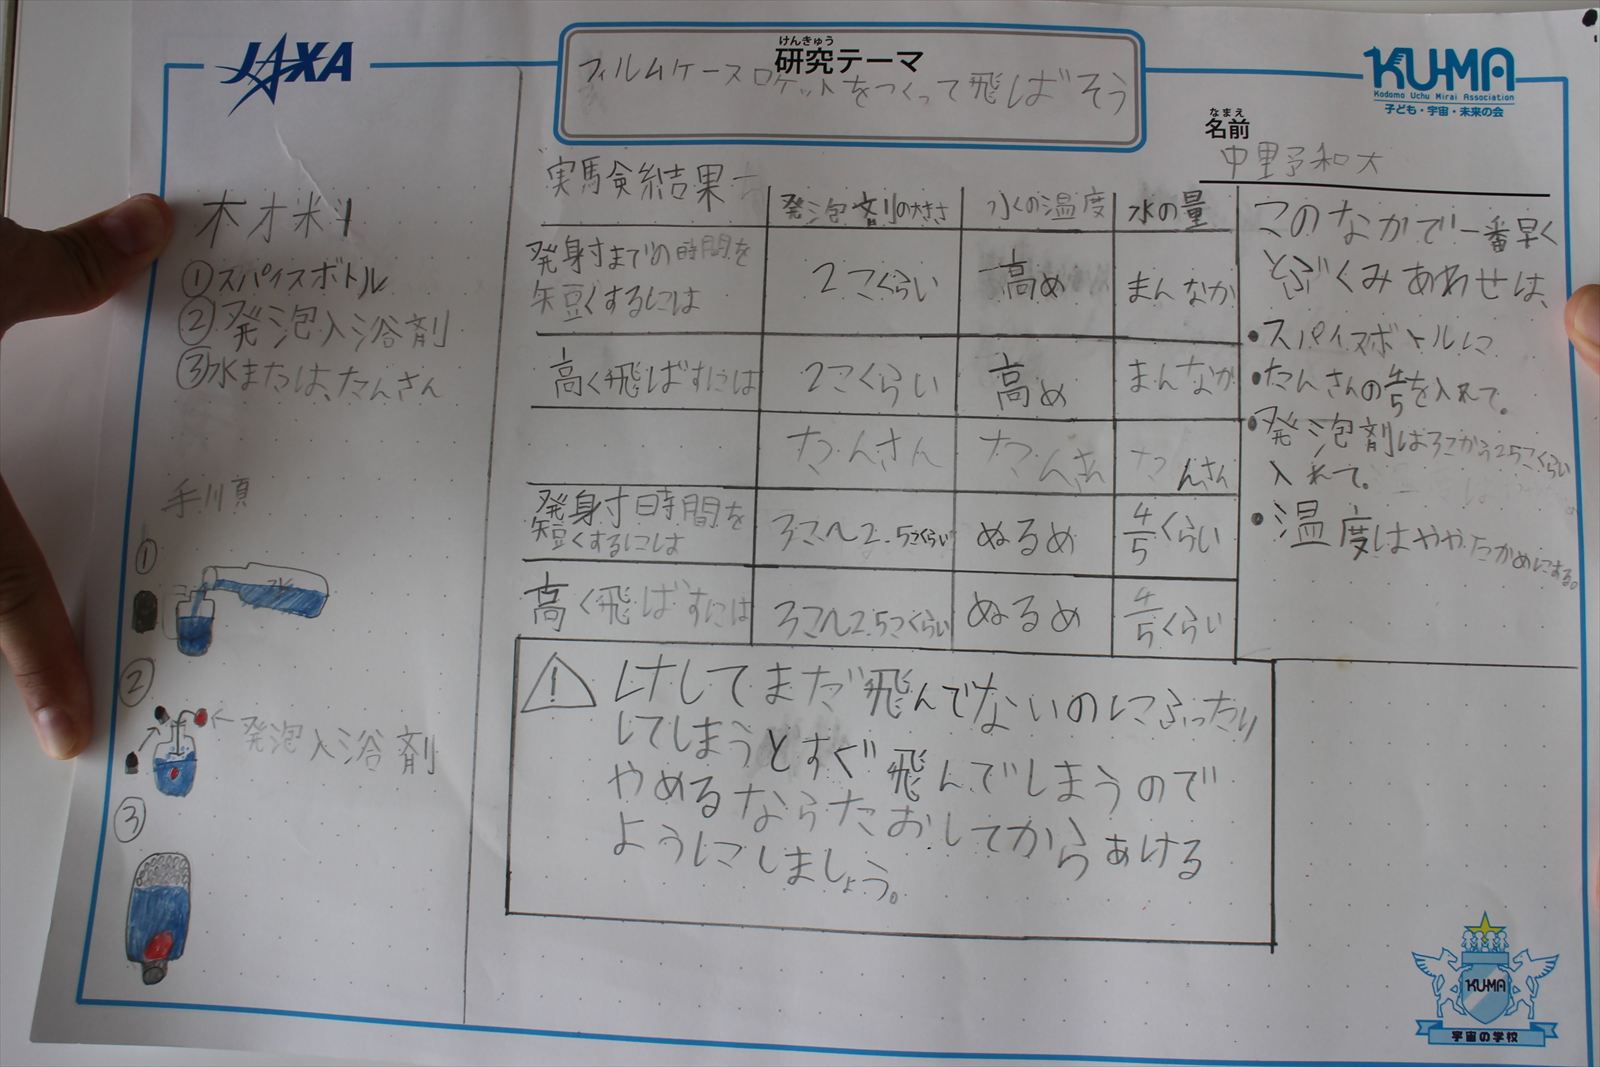 JAXA
けんきゅう
研究テーマ
フィルムケースロケットをつくって飛ばそう
KU-MA
Kodomo Uchu Mirai Association
子ども・宇宙・未来の会
なまえ
名前
中野和大
材料
①スパイスボトル
②発泡入浴剤
③水または、たんさん
手順
①
水
②
←発泡入浴剤
③
実験結果
発泡剤の大きさ 水の温度 水の量
発射までの時間を
短くするには
2こくらい 高め まんなか
高く飛ばすには 2こくらい 高め まんなか
たんさん たんさん たんさん
発射時間を
短くするには
3こ〜2.5こくらい ぬるめ 4/5くらい
高く飛ばすには 3こ〜2.5こくらい ぬるめ 4/5くらい
このなかで一番早く
とぶくみあわせは、
・スパイスボトルに
・たんさんの4/5を入れて。
・発泡剤は3こから2.5こくらい
入れて。
・温度はややたかめにする。
! けしてまだ飛んでないのにふったり
してしまうとすぐ飛んでしまうので
やめるならたおしてからあける
ようにしましょう。
KU-MA
宇宙の学校